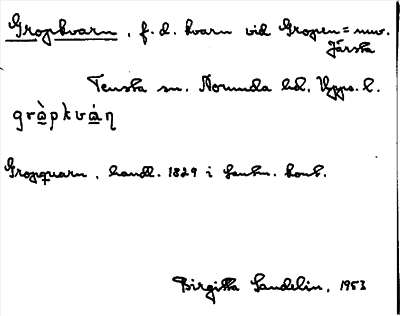 Gropkvarn, f. d. kvarn vid Gropen = nuv.
Järsta
Tensta sn. Norunda hd. Upps. l.
gràpkván
Gropquarn, handl. 1829 i lantm. kont.
Birgitta Sandelin, 1953